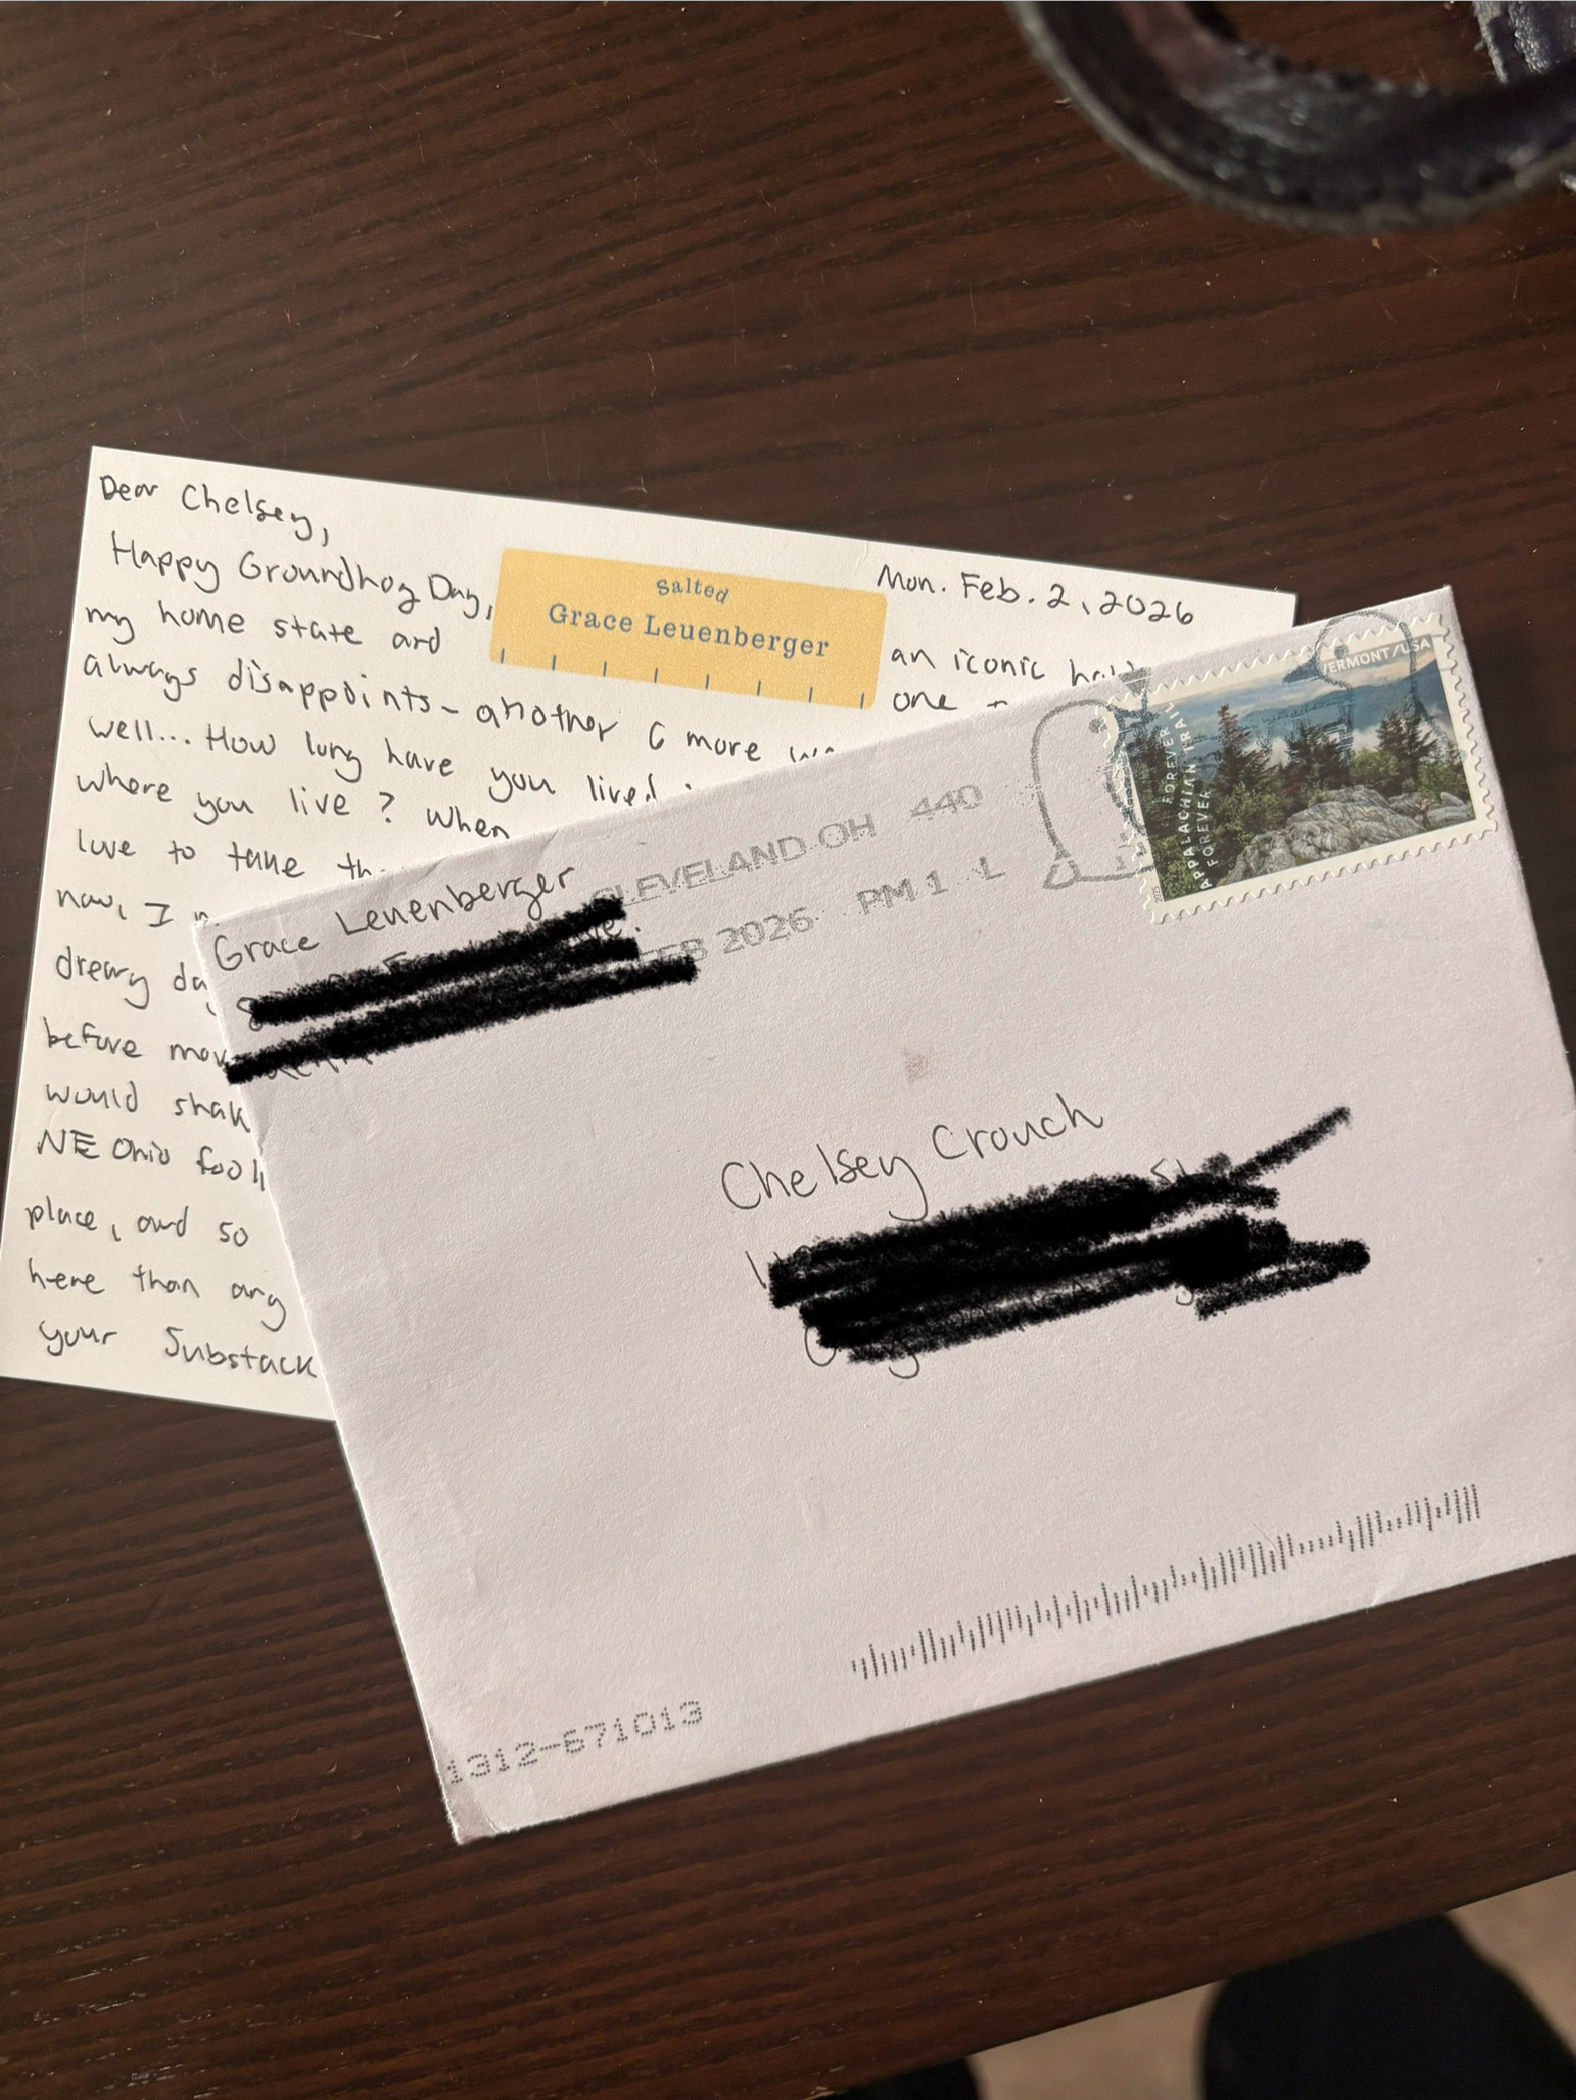 Dear Chelsey,
Mon. Feb. 2, 2026
Happy Groundhog Day,
an iconic
my home state and
one
always disappoints - another 6 more
well... How long have you lived
where you live? When
love to take
now, I
dreary
before
would
NE Ohio
place, and so
here than any
your Substack
Salted
Grace Leuenberger
Grace Leuenberger
CLEVELAND OH 440
FEB 2026 PM 1 L
VERMONT/USA
FOREVER
APPALACHIAN TRAIL
FOREVER
Chelsey Crouch
1312-671013